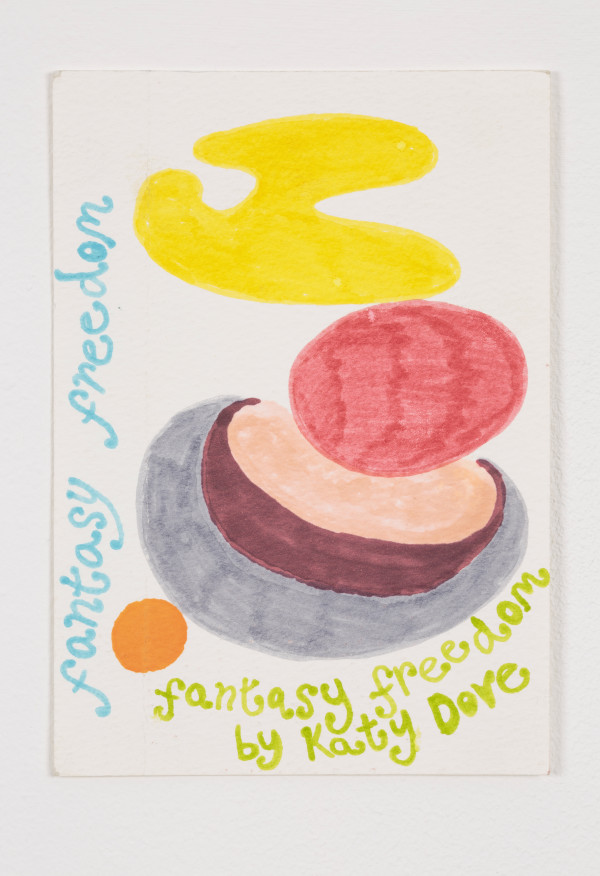 fantasy freedom
fantasy freedom
by Katy Dove